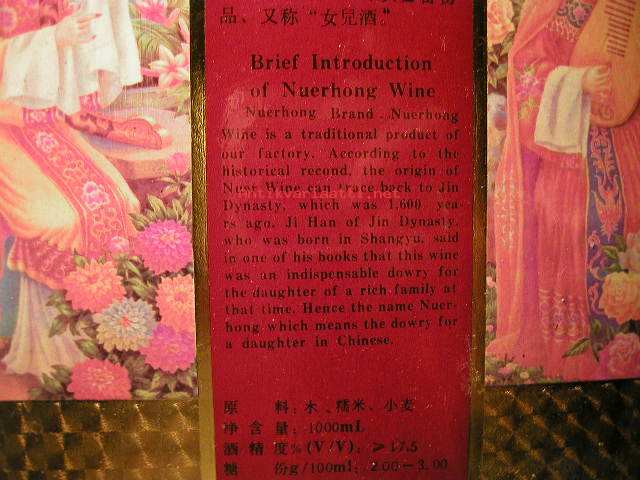 品、又称“女兒酒”
Brief Introduction
of Nuerhong Wine
Nuerhong Brand. Nuerhong
Wine is a traditional product of
our factory. According to the
historical recond, the origin of
Wine can trace back to Jin
Dynasty, which was 1,600 yea-
rs ago. Ji Han of Jin Dynasty,
who was born in Shangyu, said
in one of his books that this wine
was an indispensable dowry for
the daughter of a rich family at
that time. Hence the name Nuer-
hong which means the dowry for
a daughter in Chinese.
原 料: 水、糯米、小麦
净含量: 1000mL
酒精度%(V/V): ≥17.5
糖 份g/100ml: 2.00-3.00